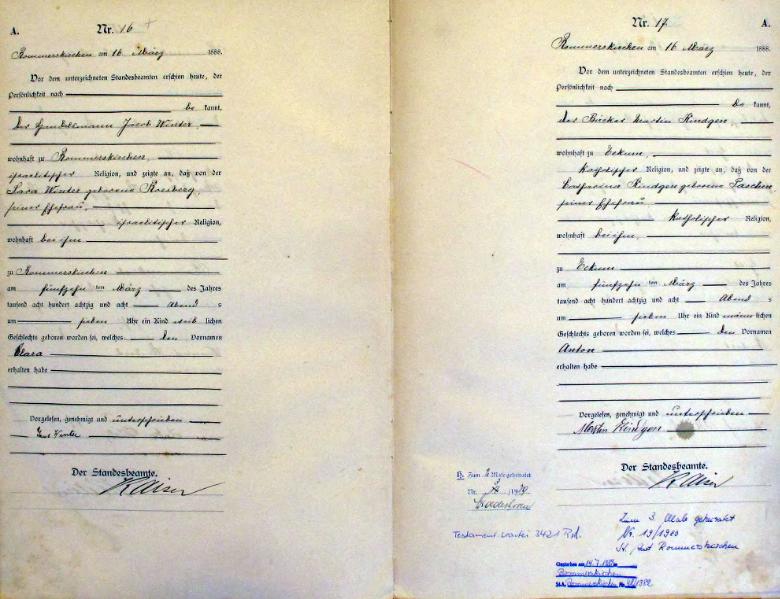 A.
Nr. 16
Rommerskirchen am 16 März 1888.
Vor dem unterzeichneten Standesbeamten erschien heute, der
Persönlichkeit nach
be kannt,
der Handelsmann Jacob Winter,
wohnhaft zu Rommerskirchen,
israelitischer Religion, und zeigte an, daß von der
Sara Winter geborene Rosberg,
seiner Ehefrau,
israelitischer Religion,
wohnhaft bei ihm,
zu Rommerskirchen
am fünfzehn ten März des Jahres
tausend acht hundert achtzig und acht Abend s
um sieben Uhr ein Kind weib lichen
Geschlechts geboren worden sei, welches den Vornamen
Clara
erhalten habe
Vorgelesen, genehmigt und unterschrieben
Winter
Der Standesbeamte.
Kaiser
Nr. 17
A.
Rommerskirchen am 16 März 1888.
Vor dem unterzeichneten Standesbeamten erschien heute, der
Persönlichkeit nach
be kannt,
der Bäcker Martin Rindgen,
wohnhaft zu Eckum,
katholischer Religion, und zeigte an, daß von der
Catharina Rindgen geborene Paschen
seiner Ehefrau,
katholischer Religion,
wohnhaft bei ihm,
zu Eckum
am fünfzehn ten März des Jahres
tausend acht hundert achtzig und acht Abend s
um sieben Uhr ein Kind männ lichen
Geschlechts geboren worden sei, welches den Vornamen
Anton
erhalten habe
Vorgelesen, genehmigt und unterschrieben
Martin Rindgen
Der Standesbeamte.
Kaiser
H. Zum 2 Male geheiratet
Nr.
Testament
Zum 3. Male geheiratet
Nr. 19/19
St. Amt Rommerskirchen
Gestorben am 14.7.
Rommerskirchen
St.A. Rommerskirchen Nr.